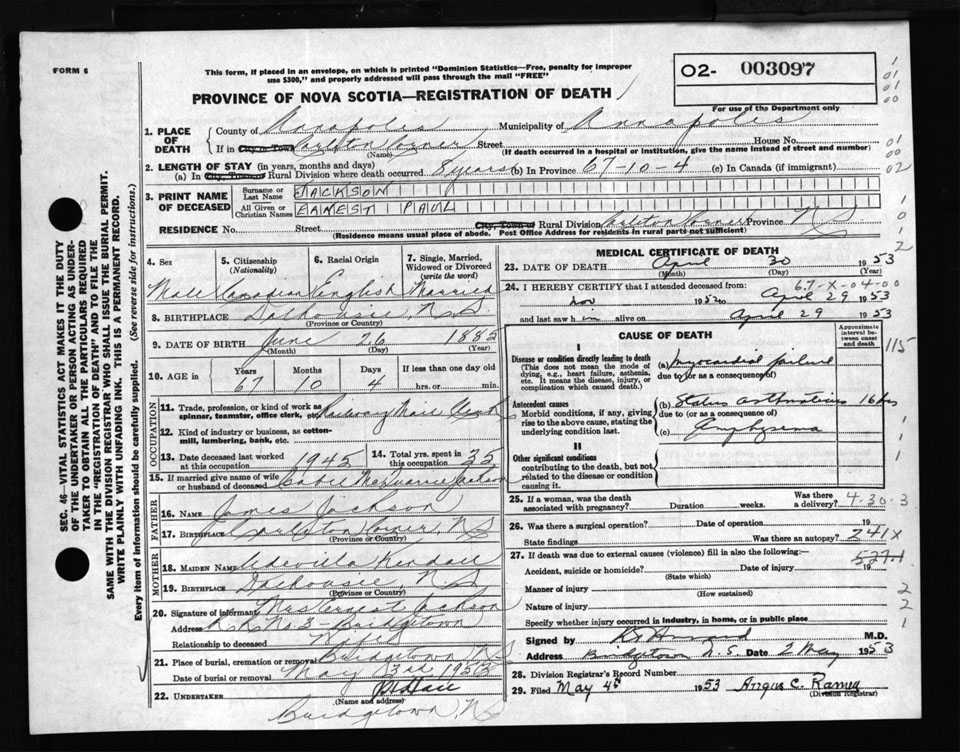 FORM 6
This form, if placed in an envelope, on which is printed "Dominion Statistics—Free, penalty for improper
use $300," and properly addressed will pass through the mail "FREE"
02- 003097
For use of the Department only
PROVINCE OF NOVA SCOTIA—REGISTRATION OF DEATH
1. PLACE OF DEATH
County of Annapolis Municipality of Annapolis
If in City or Town Carleton Corner Street House No.
(Name) (If death occurred in a hospital or institution, give the name instead of street and number)
2. LENGTH OF STAY (in years, months and days)
(a) In City, Town or Rural Division where death occurred 8 years (b) In Province 67-10-4 (c) In Canada (if immigrant)
3. PRINT NAME OF DECEASED
Surname or Last Name JACKSON
All Given or Christian Names EARNEST PAUL
RESIDENCE No. Street City, Town or Rural Division Carleton Corner Province N S
(Residence means usual place of abode. Post Office Address for residents in rural parts not sufficient)
SEC. 46—VITAL STATISTICS ACT MAKES IT THE DUTY
OF THE UNDERTAKER OR PERSON ACTING AS UNDER-
TAKER TO OBTAIN ALL THE PARTICULARS REQUIRED
IN THE "REGISTRATION OF DEATH" AND TO FILE THE
SAME WITH THE DIVISION REGISTRAR WHO SHALL ISSUE THE BURIAL PERMIT.
WRITE PLAINLY WITH UNFADING INK. THIS IS A PERMANENT RECORD.
Every item of information should be carefully supplied. (See reverse side for instructions.)
4. Sex Male
5. Citizenship (Nationality) Canadian
6. Racial Origin English
7. Single, Married, Widowed or Divorced (write the word) Married
8. BIRTHPLACE Dalhousie, N.S.
(Province or Country)
9. DATE OF BIRTH June 26 1885
(Month) (Day) (Year)
10. AGE in Years Months Days If less than one day
67 10 4 hrs. or min.
OCCUPATION
11. Trade, profession, or kind of work as spinner, teamster, office clerk, etc. Railway Mail Clerk
12. Kind of industry or business, as cotton-mill, lumbering, bank, etc.
13. Date deceased last worked at this occupation 1945
14. Total yrs. spent in this occupation 35
15. If married give name of wife or husband of deceased Jackson
FATHER
16. NAME James Jackson
17. BIRTHPLACE Carleton Corner, N.S.
(Province or Country)
MOTHER
18. MAIDEN NAME Kendall
19. BIRTHPLACE Dalhousie, N.S.
(Province or Country)
20. Signature of informant Mrs Ernest Jackson
Address R.R. No. 3 - Bridgetown
Relationship to deceased Wife
21. Place of burial, cremation or removal Bridgetown, N.S.
Date of burial or removal May 3rd 1953
22. UNDERTAKER
(Name and address)
Bridgetown, N.S.
MEDICAL CERTIFICATE OF DEATH
23. DATE OF DEATH April 30 1953
(Month) (Day) (Year)
67-X-04-00
24. I HEREBY CERTIFY that I attended deceased from:
Nov 1952 to April 29 1953
and last saw him alive on April 29 1953
CAUSE OF DEATH
Approximate interval between onset and death
I
Disease or condition directly leading to death
(This does not mean the mode of dying, e.g., heart failure, asthenia, etc. It means the disease, injury, or complication which caused death.)
(a) Myocardial failure
due to (or as a consequence of)
Antecedent causes
Morbid conditions, if any, giving rise to the above cause, stating the underlying condition last.
(b) Status asthmaticus 16 hrs
due to (or as a consequence of)
(c) Emphysema
II
Other significant conditions
contributing to the death, but not related to the disease or condition causing it.
25. If a woman, was the death associated with pregnancy? Duration weeks. Was there a delivery? 4-30-3
26. Was there a surgical operation? Date of operation 19
State findings Was there an autopsy? 241X
27. If death was due to external causes (violence) fill in also the following:— 527.1
Accident, suicide or homicide? Date of injury 19
(State which)
Manner of injury
(How sustained)
Nature of injury
Specify whether injury occurred in industry, in home, or in public place
Signed by M.D.
Address Bridgetown N.S. Date 2 May 1953
28. Division Registrar's Record Number
29. Filed May 4th 1953 Angus C. Ramey
(Division Registrar)
115